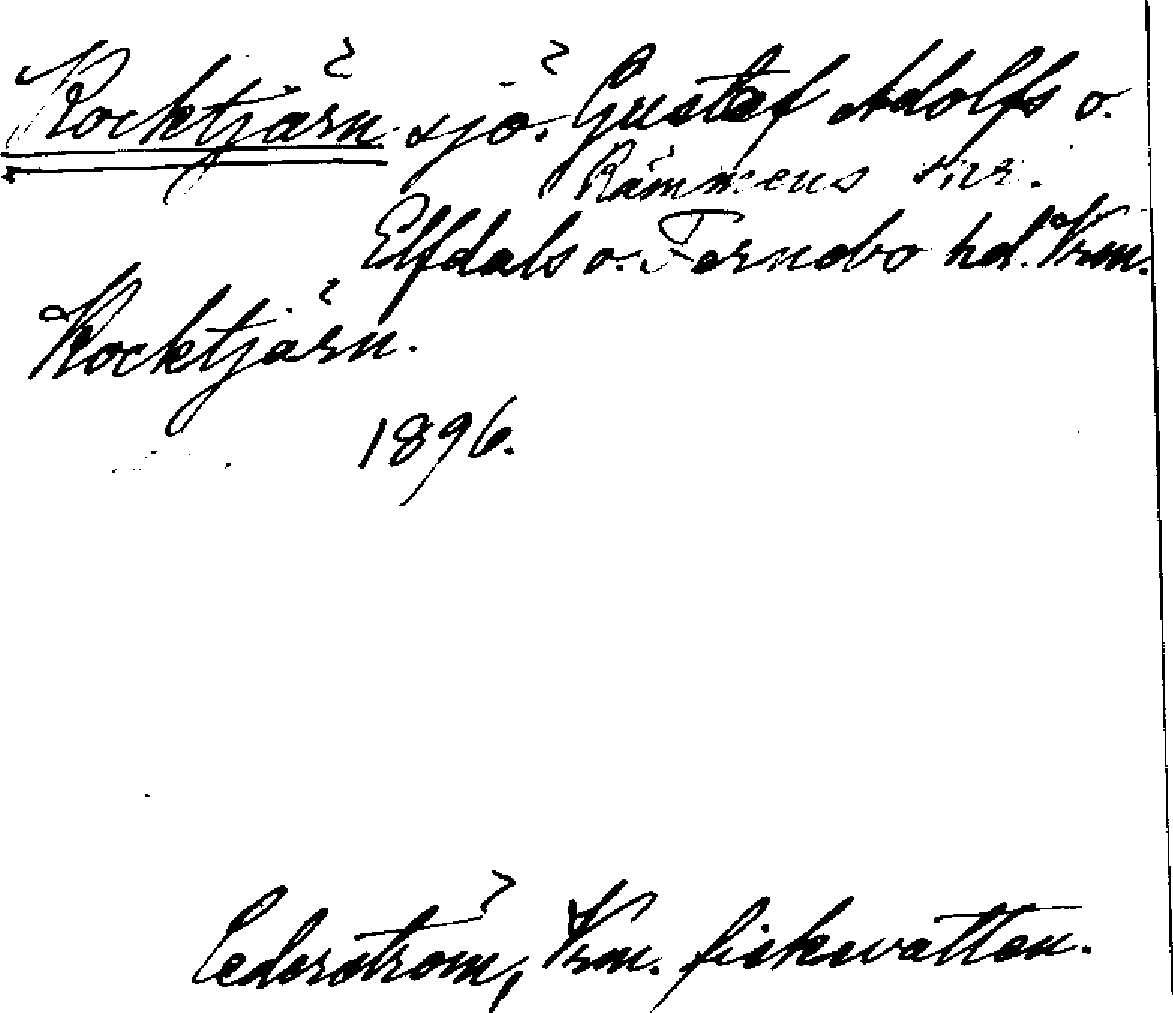 Kocktjärn sjö. Gustaf Adolfs o.
Rämmens snr.
Elfdals o. Fernebo hd. Vrm.
Kocktjärn.
1896.
Cederström, Vrm. fiskevatten.